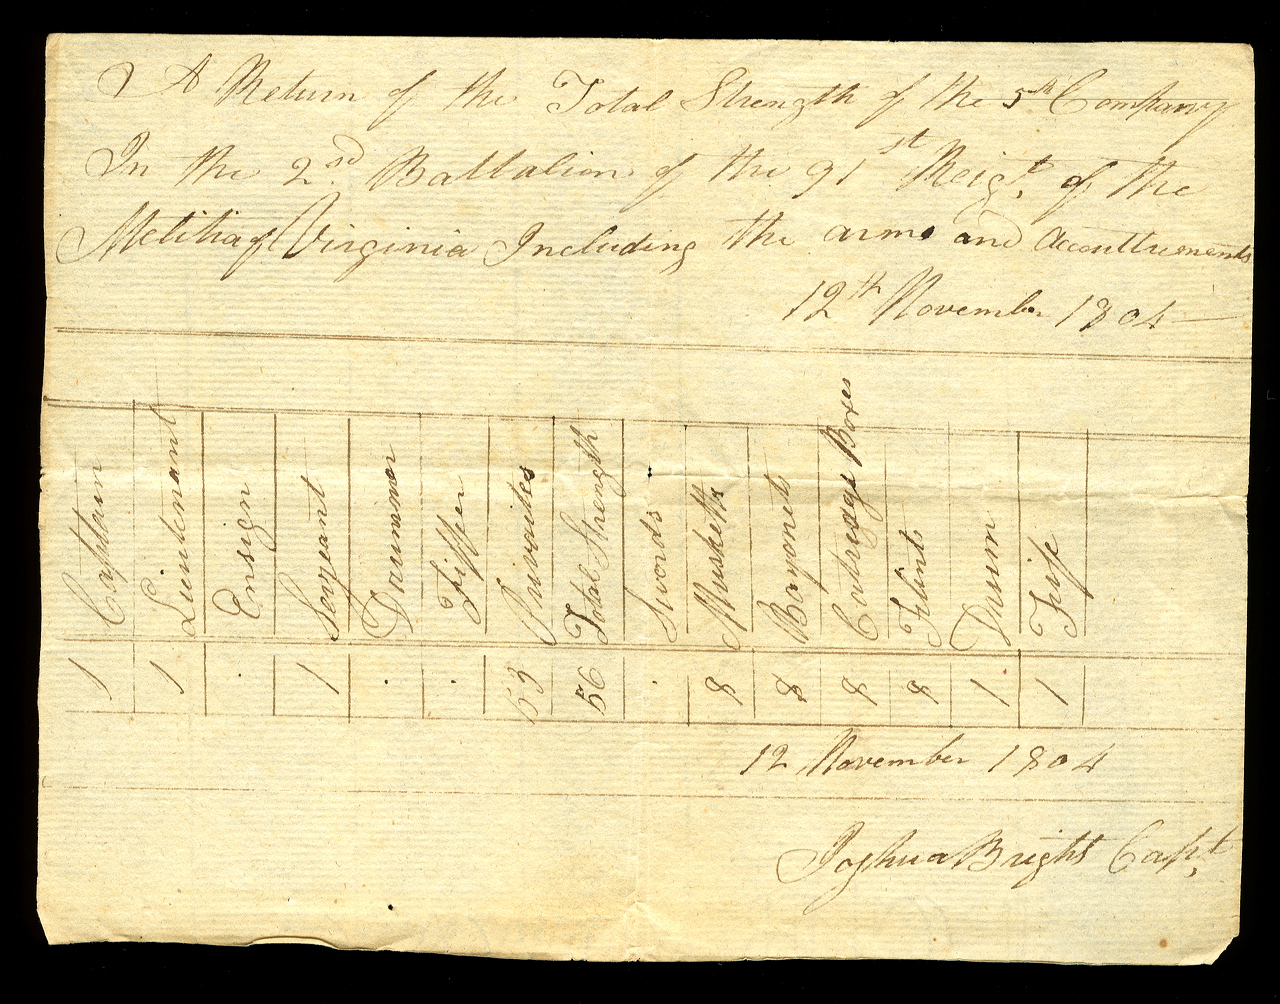 A Return of the Total Strength of the 5th Company
In the 2sd Battalion of the 91st Reigt. of the
Melitia of Virginia Including the arms and Accoutrements
12th November 1804
Captain Lieutenant Ensign Sergeant Drummer Fiffer Privates Total Strength Swords Musketts Bayonets Cartridge Boxes Flints Drum Fife
1 1 . 1 . . 53 56 . 8 8 8 8 1 1
12 November 1804
Joshua Bright Capt.